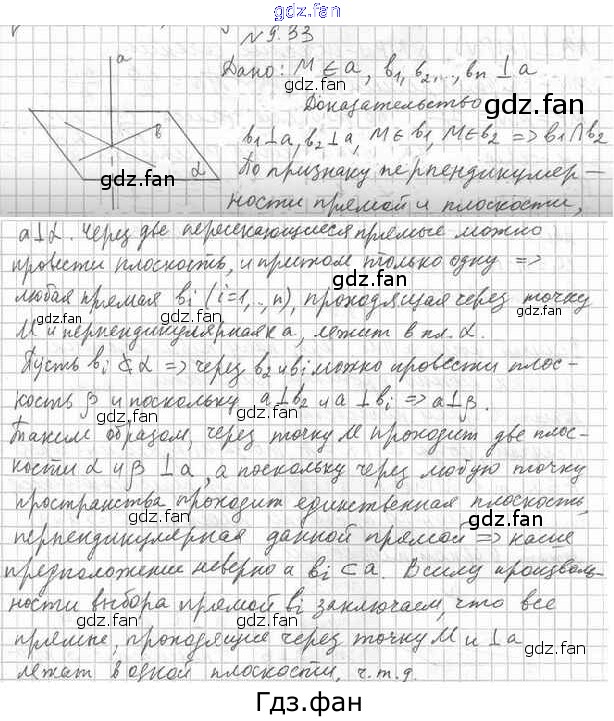 gdz.fan
№9.33
a
Дано: M ∈ a, b₁, b₂,..., bn ⊥ a
gdz.fan
Доказательство
gdz.fan
b
b₁⊥a, b₂⊥a, M∈b₁, M∈b₂ => b₁∩b₂
α
gdz.fan
По признаку перпендикуляр-
gdz.fan
ности прямой и плоскости,
a⊥α. Через две пересекающиеся прямые можно
gdz.fan
провести плоскость, и притом только одну =>
любая прямая bi (i=1,..,n), проходящая через точку
gdz.fan
M и перпендикулярная к a, лежит в пл. α.
gdz.fan
Пусть bi ⊄ α => через b₂ и bi можно провести плос-
кость β и поскольку a⊥b₂ и a⊥bi => a⊥β.
gdz.fan
Таким образом, через точку M проходит две плос-
gdz.fan
кости α и β ⊥ a, а поскольку через любую точку
пространства проходит единственная плоскость,
gdz.fan
перпендикулярная данной прямой => наше
gdz.fan
предположение неверно а bi ⊂ a. В силу произволь-
ности выбора прямой bi заключаем, что все
gdz.fan
прямые, проходящие через точку M и ⊥ a
gdz.fan
лежат в одной плоскости, ч.т.д.
Гдз.фан